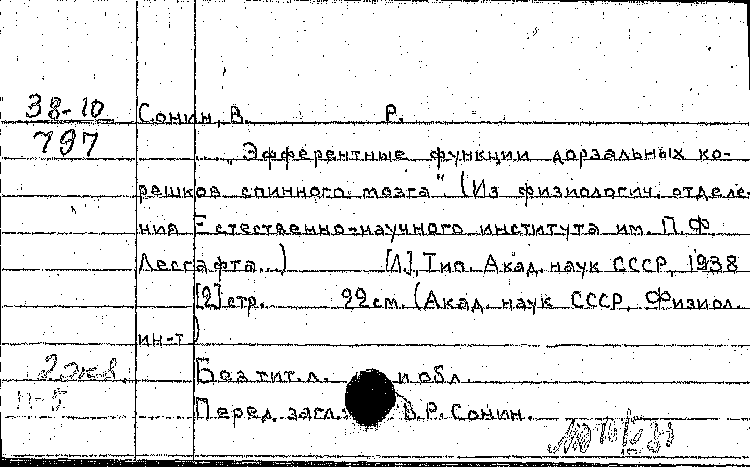 38-10 Сонин, В. Р.
797
... „Эфферентные функции дорзальных ко-
решков спинного мозга" (Из физиологич. отделе-
ния Естественно-научного института им. П.Ф.
Лесгафта...) [Л], Тип. Акад. наук СССР, 1938
[2] стр. 22 см. (Акад. наук СССР, Физиол.
ин-т)
2 экз. Без тит. л. и обл.
П-5 Перед загл.: В.Р. Сонин.